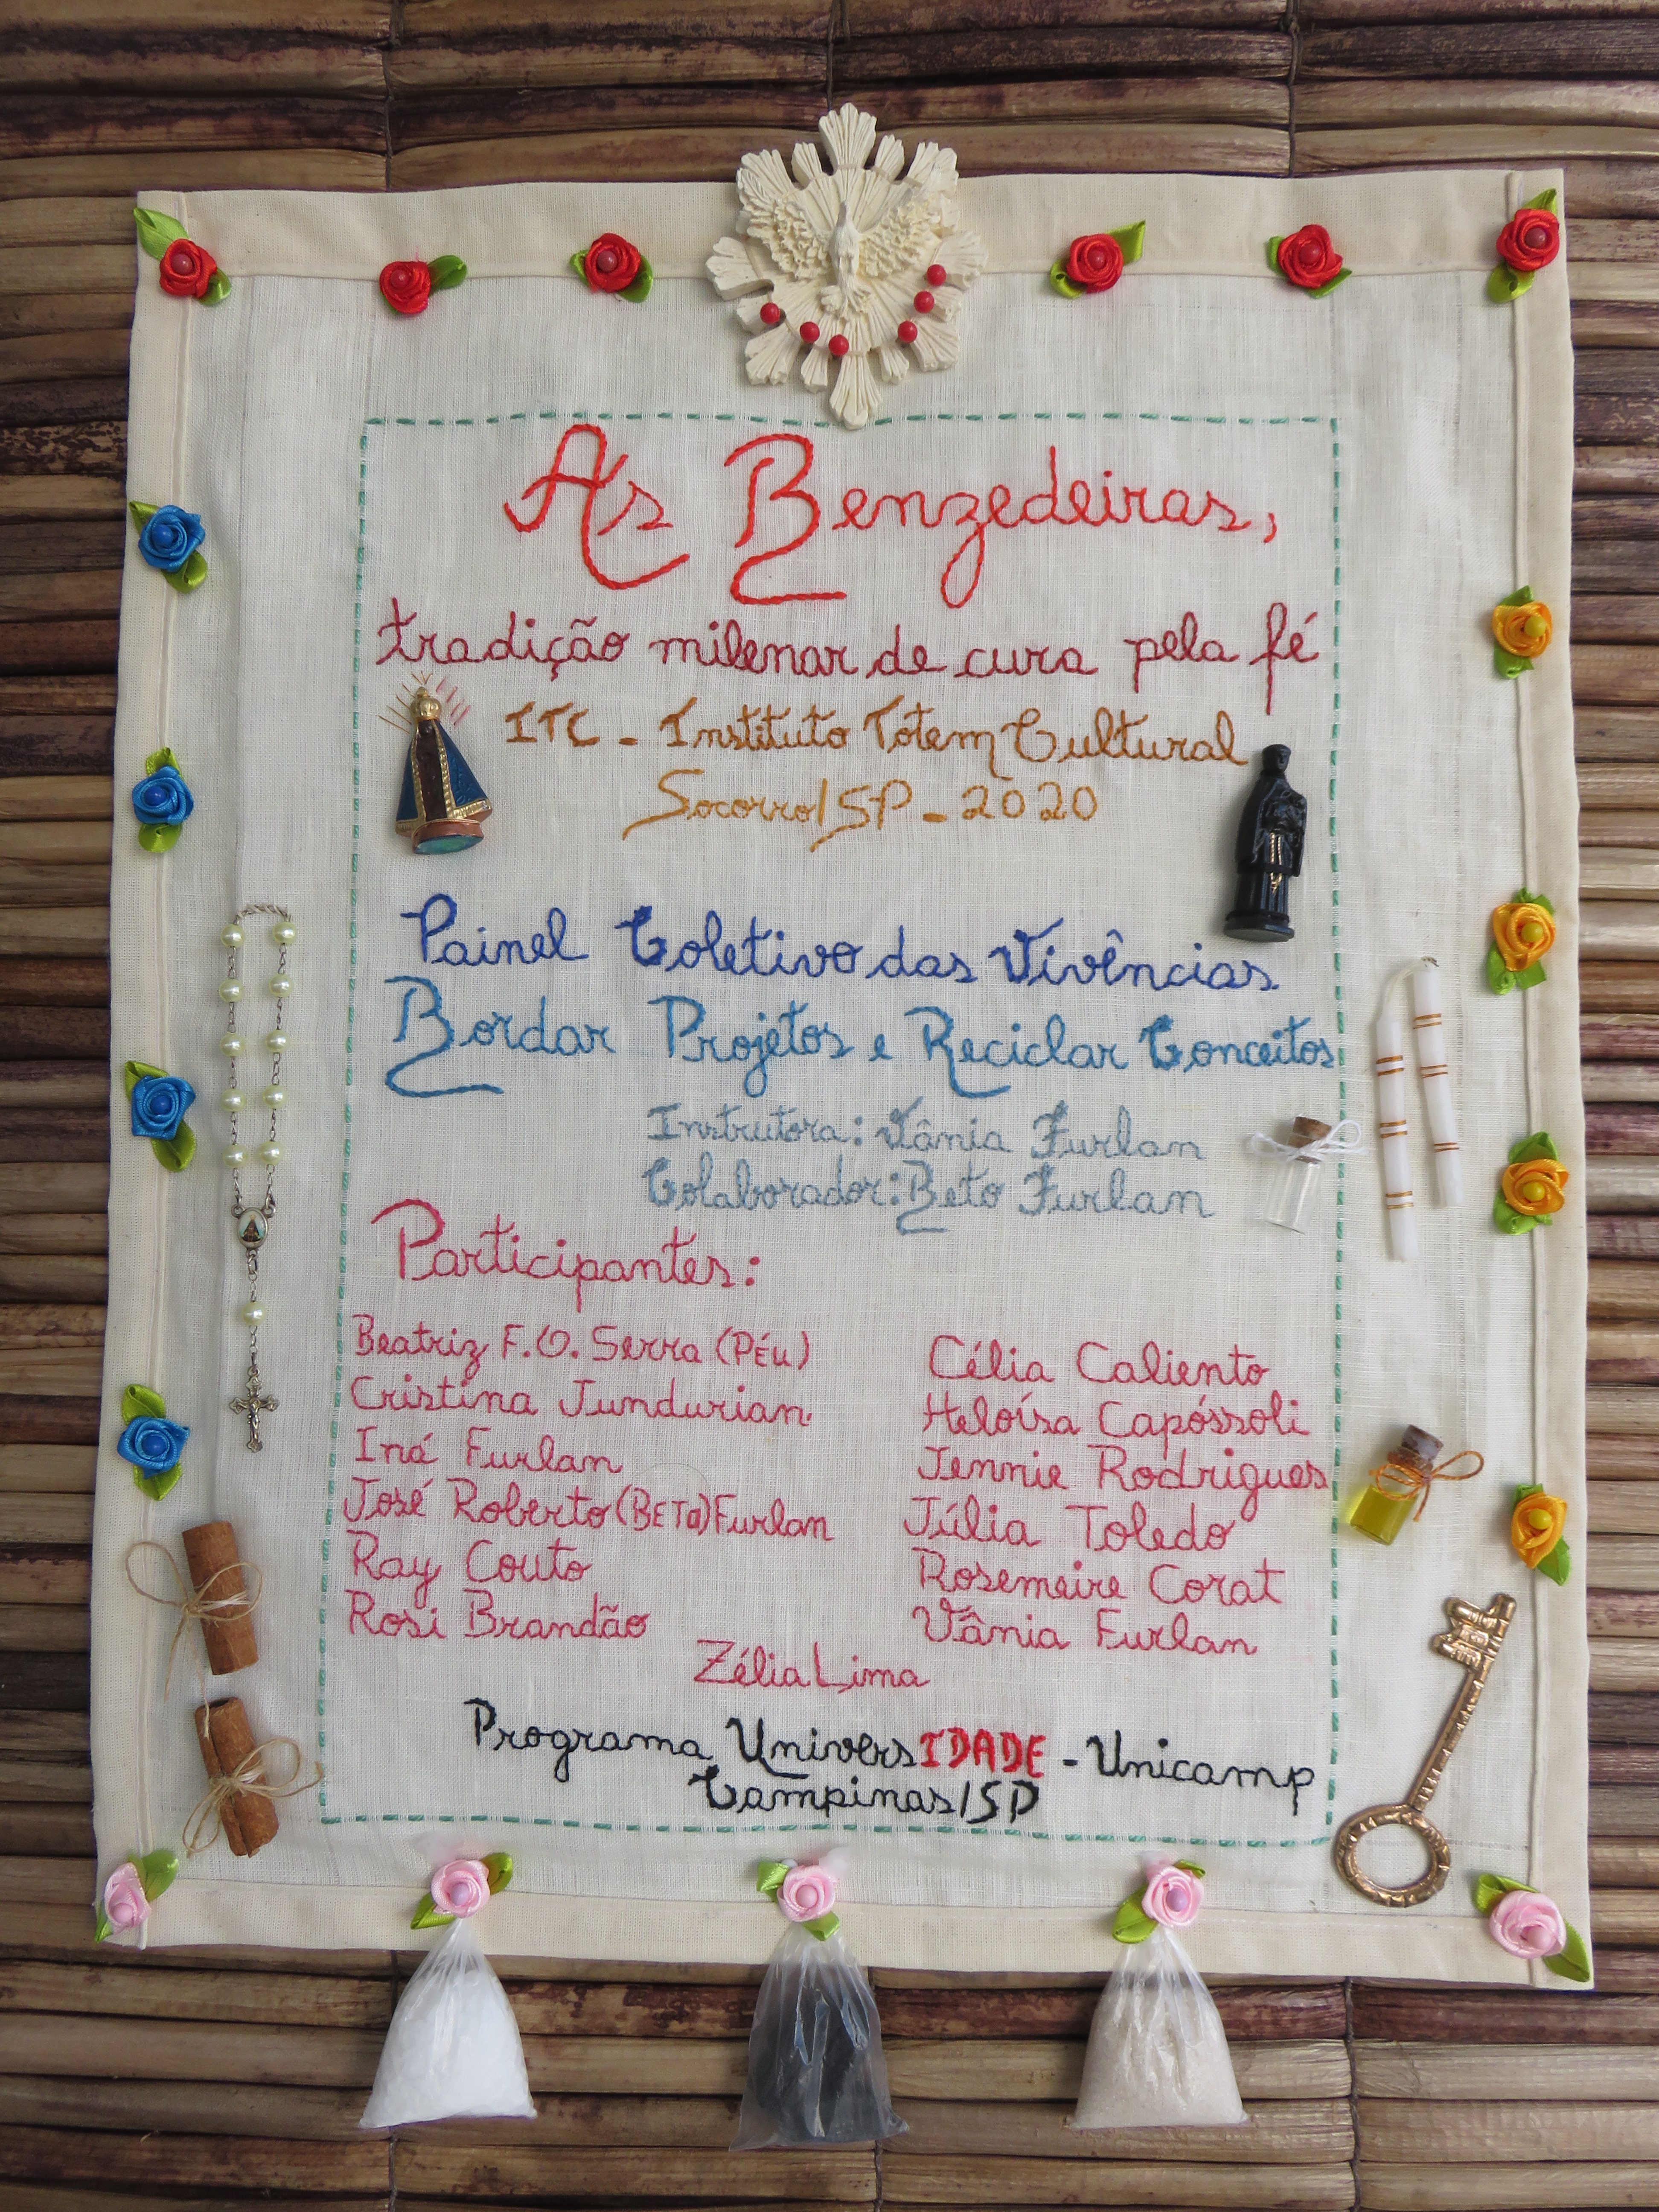 As Benzedeiras,
tradição milenar de cura pela fé
ITC - Instituto Totem Cultural
Socorro/SP - 2020
Painel Coletivo das Vivências
Bordar Projetos e Reciclar Conceitos
Instrutora: Vânia Furlan
Colaborador: Beto Furlan
Participantes:
Beatriz F.O. Serra (PÉu)
Cristina Jundurian
Iná Furlan
José Roberto (BETO) Furlan
Ray Couto
Rosi Brandão
Célia Caliento
Heloísa Capóssoli
Jennie Rodrigues
Júlia Toledo
Rosemeire Corat
Vânia Furlan
Zélia Lima
Programa UniversIDADE - Unicamp
Campinas/SP